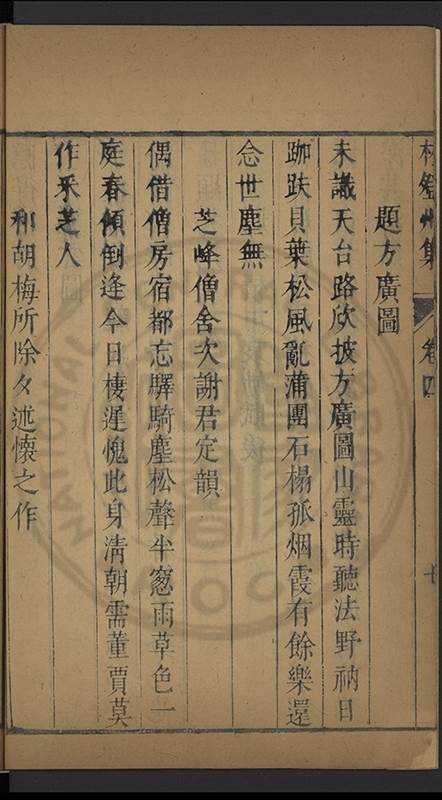 林登州集 卷四 七
題方廣圖
未識天台路欣披方廣圖山靈時聽法野衲日
跏趺貝葉松風亂蒲團石榻孤烟霞有餘樂還
念世塵無
芝峰僧舍次謝君定韻
偶借僧房宿都忘驛騎塵松聲半窻雨草色一
庭春傾倒逢今日棲遲愧此身清朝需董賈莫
作采芝人
和胡梅所除夕述懷之作